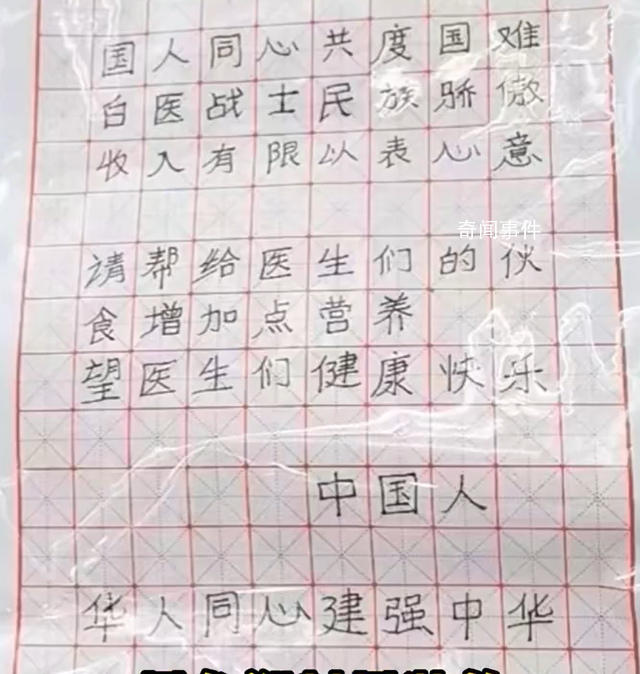 国人同心共度国难
白医战士民族骄傲
收入有限以表心意
奇闻事件
请帮给医生们的伙
食增加点营养
望医生们健康快乐
中国人
华人同心建强中华